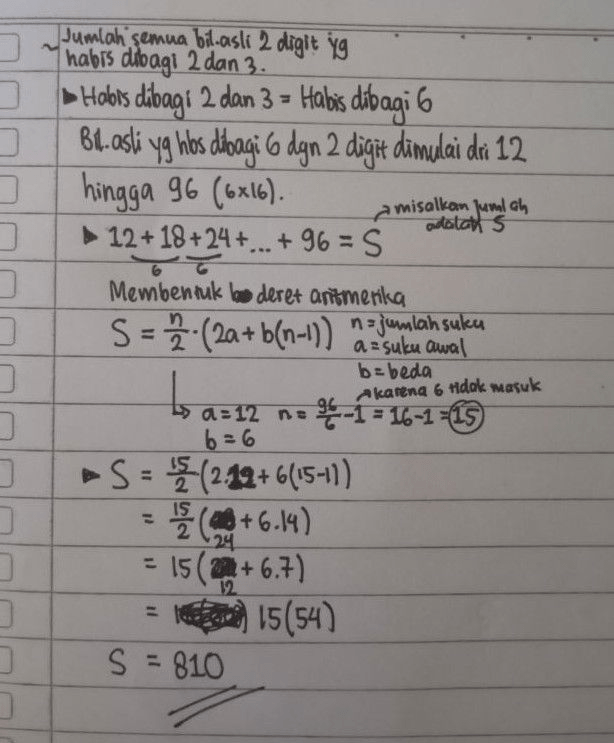 ~ Jumlah semua bil.asli 2 digit yg
habis dibagi 2 dan 3.
▶ Habis dibagi 2 dan 3 = Habis dibagi 6
Bil.asli yg hbs dibagi 6 dgn 2 digit dimulai dri 12
hingga 96 (6x16).
↗ misalkan jumlah
adalah S
▶ 12 + 18 + 24 + ... + 96 = S
6 6
Membentuk deret aritmerika
S = n/2 . (2a + b(n-1)) n = jumlah suku
a = suku awal
b = beda
↗ karena 6 tidak masuk
↳ a = 12 n = 96/6 - 1 = 16 - 1 = 15
b = 6
▶ S = 15/2 (2.12 + 6(15-1))
= 15/2 (24 + 6.14)
= 15 (12 + 6.7)
= 15(54)
S = 810